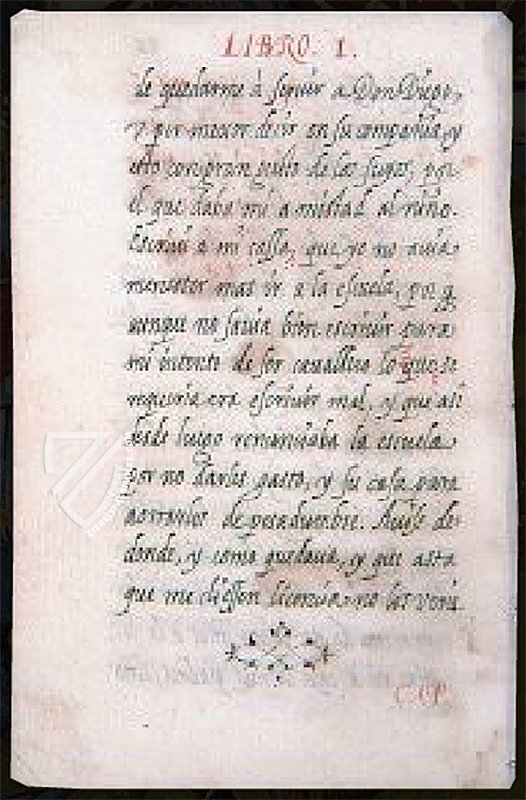 LIBRO. I.
de quedarme à seguir a Don Diego,
y por mexor decir en su compañia, y
esto con gran gusto de los suyos, por
el que daba mi amistad al niño.
Escriui a mi cassa, que yo no auia
menester mas ir a la escuela, porq
aunque no sauia bien escriuir para
mi intento de ser cauallero lo que se
requeria era escriuir mal, y que asi
desde luego renunciaba la escuela
por no darlos gasto, y su casa para
aorrarlos de pesadumbre. Auisè de
donde, y como quedaua, y que asta
que me diessen licencia no los veria.
CAP.